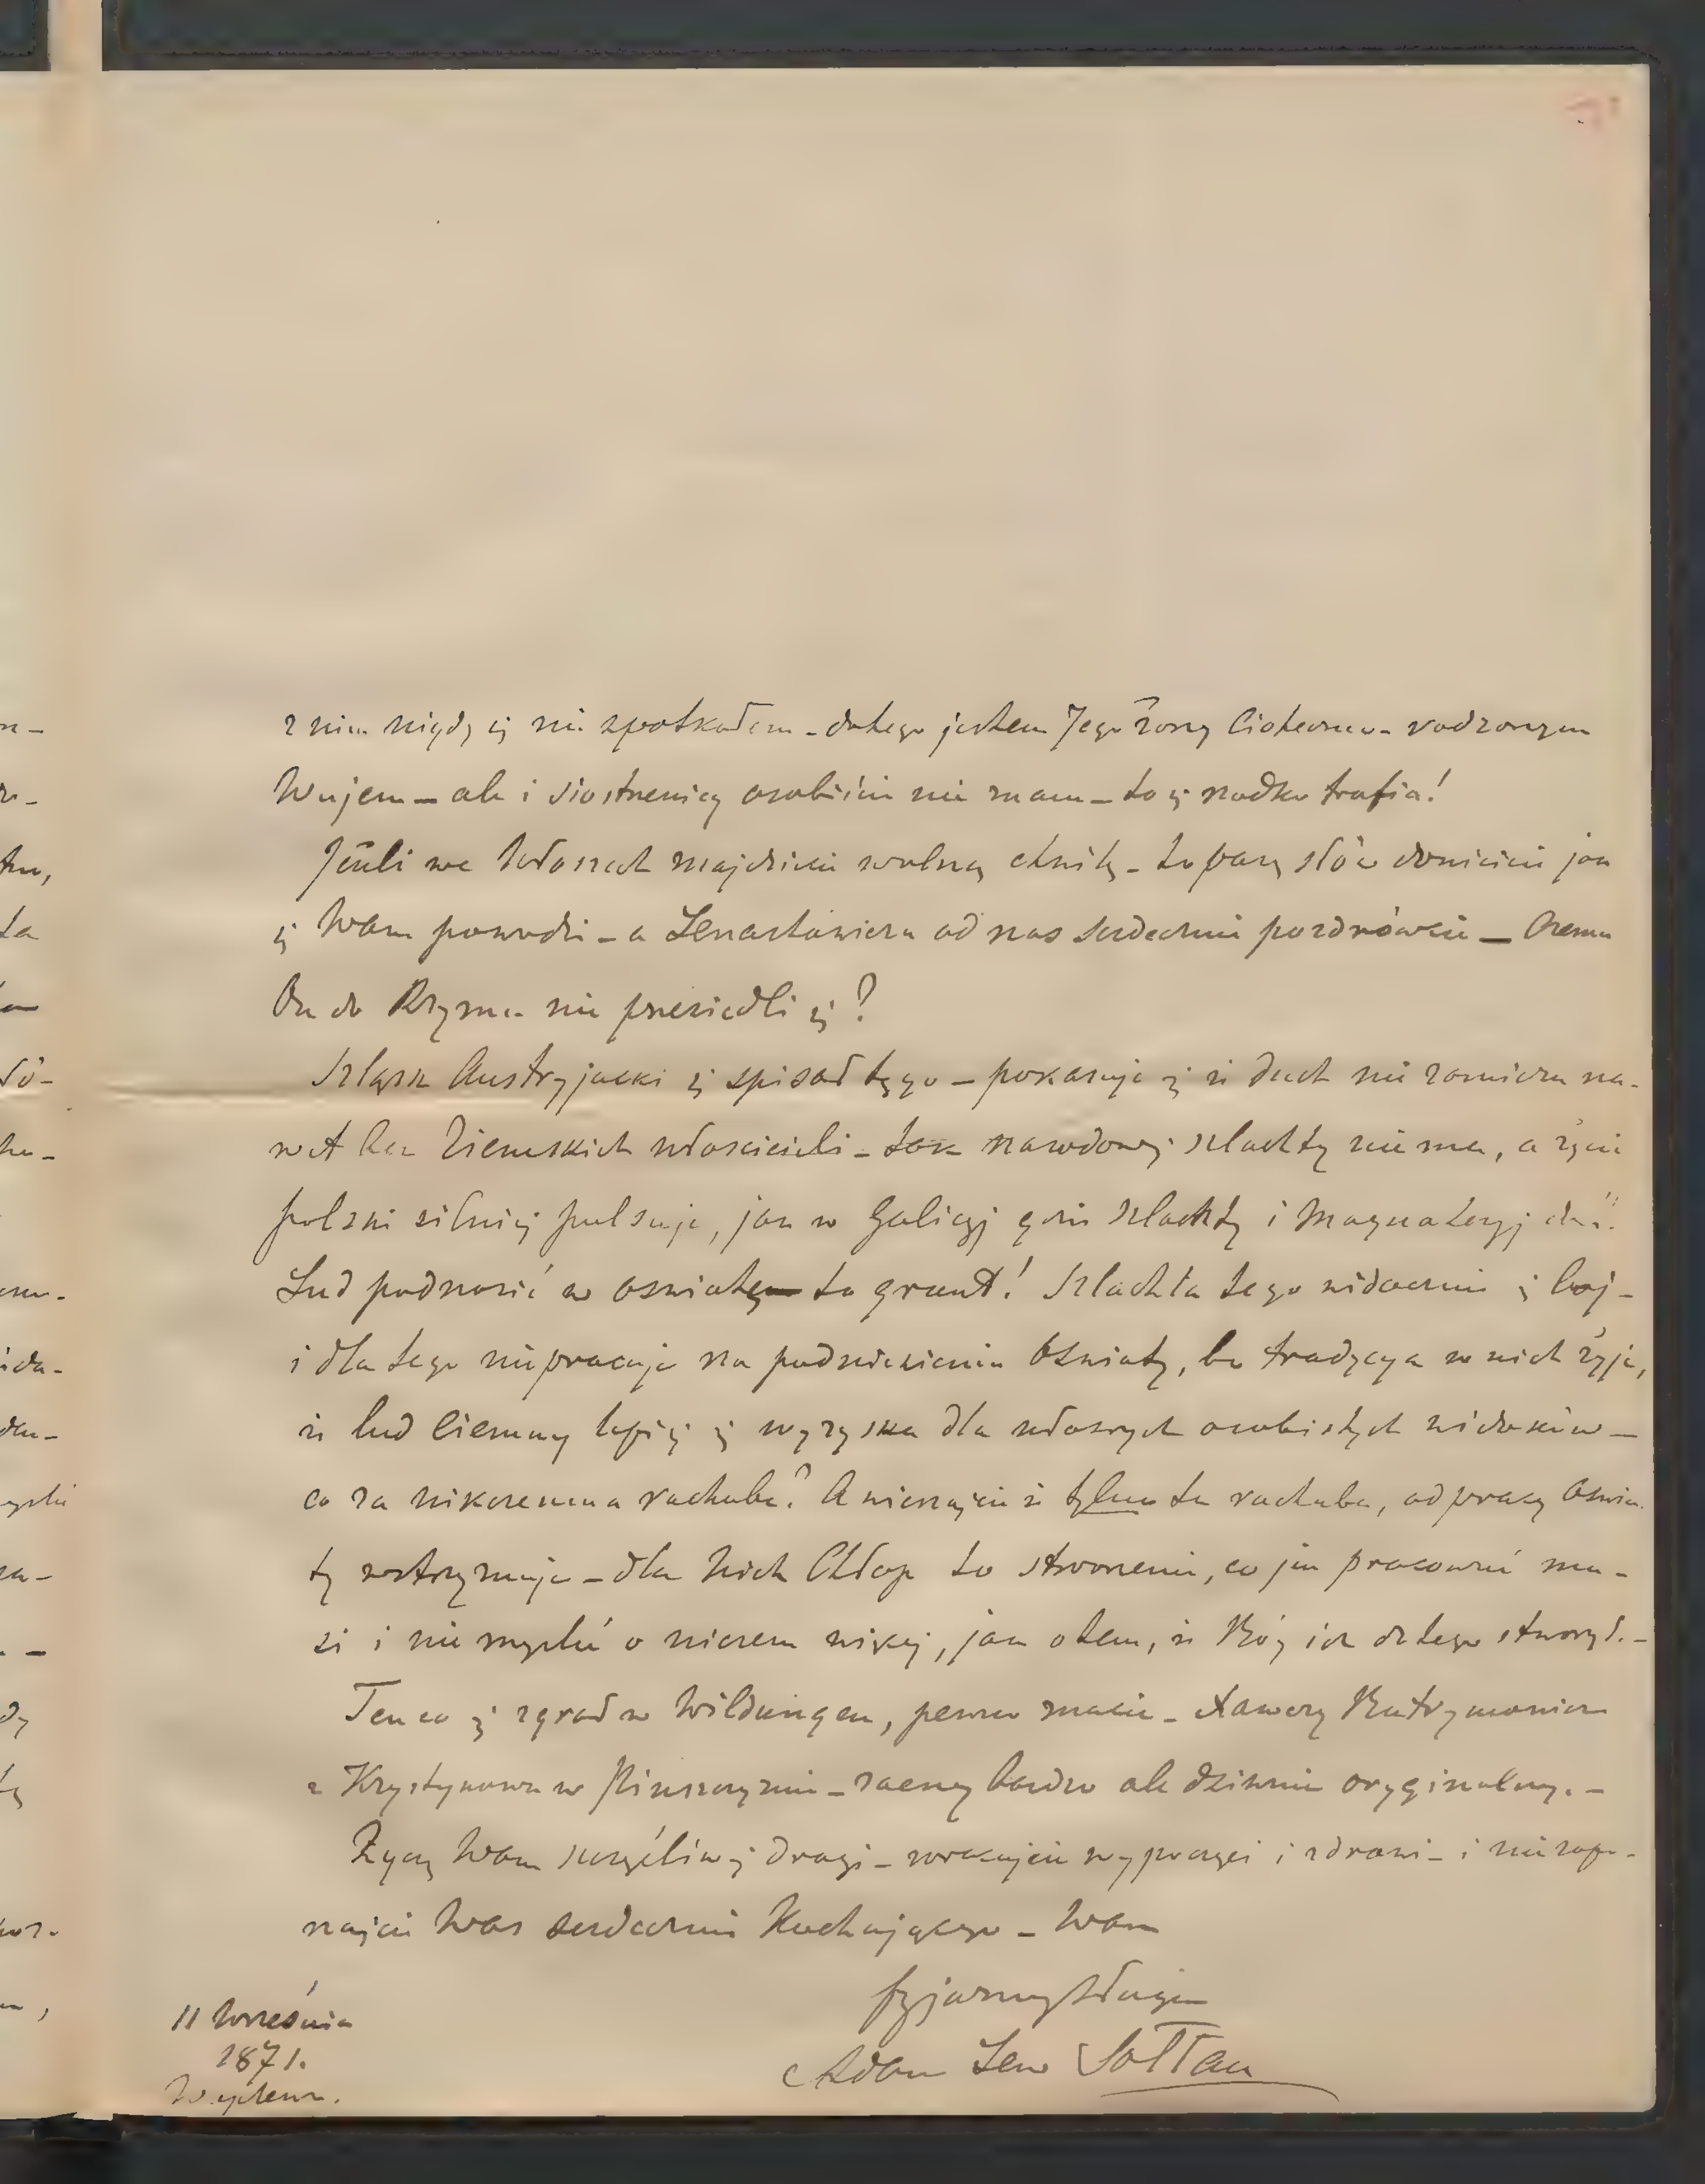 z nim nigdy się nie spotkałem – do tego jestem Jego żony Ciotecznо- rodzonym
Wujem – ale i siostrzenicy osobiście nie znam – to się rzadko trafia!
Jeżeli we Włoszech znajdziecie wolną chwilę – to parę słów donieście jak
się Wam powodzi – a Lenartowicza od nas serdecznie pozdrówcie – Czemu
On do Rzymu nie przesiedli się?
Szląsk Austryjacki się spisał tęgo – pokazuje się że duch nie zamiera na-
wet bez Ziemskich właścicieli – tam narodowej szlachty nie ma, a życie
polskie silniej pulsuje, jak w Galicyj gdzie szlachty i Magnateryj
Lud podnosić w oświatę – to grunt! Szlachta tego widocznie się boj –
i dla tego nie pracuje na podniesienie Oświaty, bo tradycya w nich żyje,
że lud Ciemny lepiej się wyzyska dla własnych osobistych widoków –
co za nikczemna rachuba? A wierzajcie że tylko ta rachuba, od pracy Oświa-
ty wstrzymuje – dla Nich Chłop to stworzenie, co jen pracować mu-
si i nie myśleć o niczem więcej, jak otem, że Bóg ich do tego stworzył. –
Ten co się zgrał w Wildungen, pewno znacie – Xawery Butrymowicz
z Krystynowa w Pinszczyznie – zacny bardzo ale dziwnie oryginalny. –
Życzę Wam szczęśliwej drogi – wracajcie wypoczęci i zdrowi – i nie zapo-
najcie Was serdecznie Kochającego – Wam
Sługa
Adam Lew Sołtan
11 Września
1871.